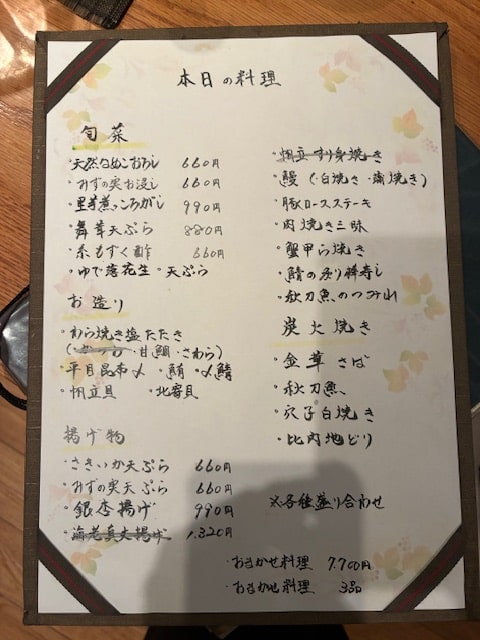 本日の料理
旬菜
・天然なめこおろし 660円
・みずの実お浸し 660円
・里芋煮っころがし 990円
・舞茸天ぷら 880円
・糸もずく酢 660円
・ゆで落花生・天ぷら
お造り
・わら焼き塩たたき
(かつお・甘鯛・さわら)
・平目昆布〆 ・鮪 ・〆鯖
・帆立貝 ・北寄貝
揚げ物
・さきいか天ぷら 660円
・みずの実天ぷら 660円
・銀杏揚げ 990円
・海老真丈揚げ 1,320円
・帆立すり身焼き
・鰻(・白焼き・蒲焼き)
・豚ロースステーキ
・肉焼き三昧
・蟹甲ら焼き
・鯖の炙り棒寿し
・秋刀魚のつみれ
炭火焼き
・金華さば
・秋刀魚
・穴子白焼き
・比内地どり
※各種盛り合わせ
・おまかせ料理 7,700円
・おまかせ料理 3品